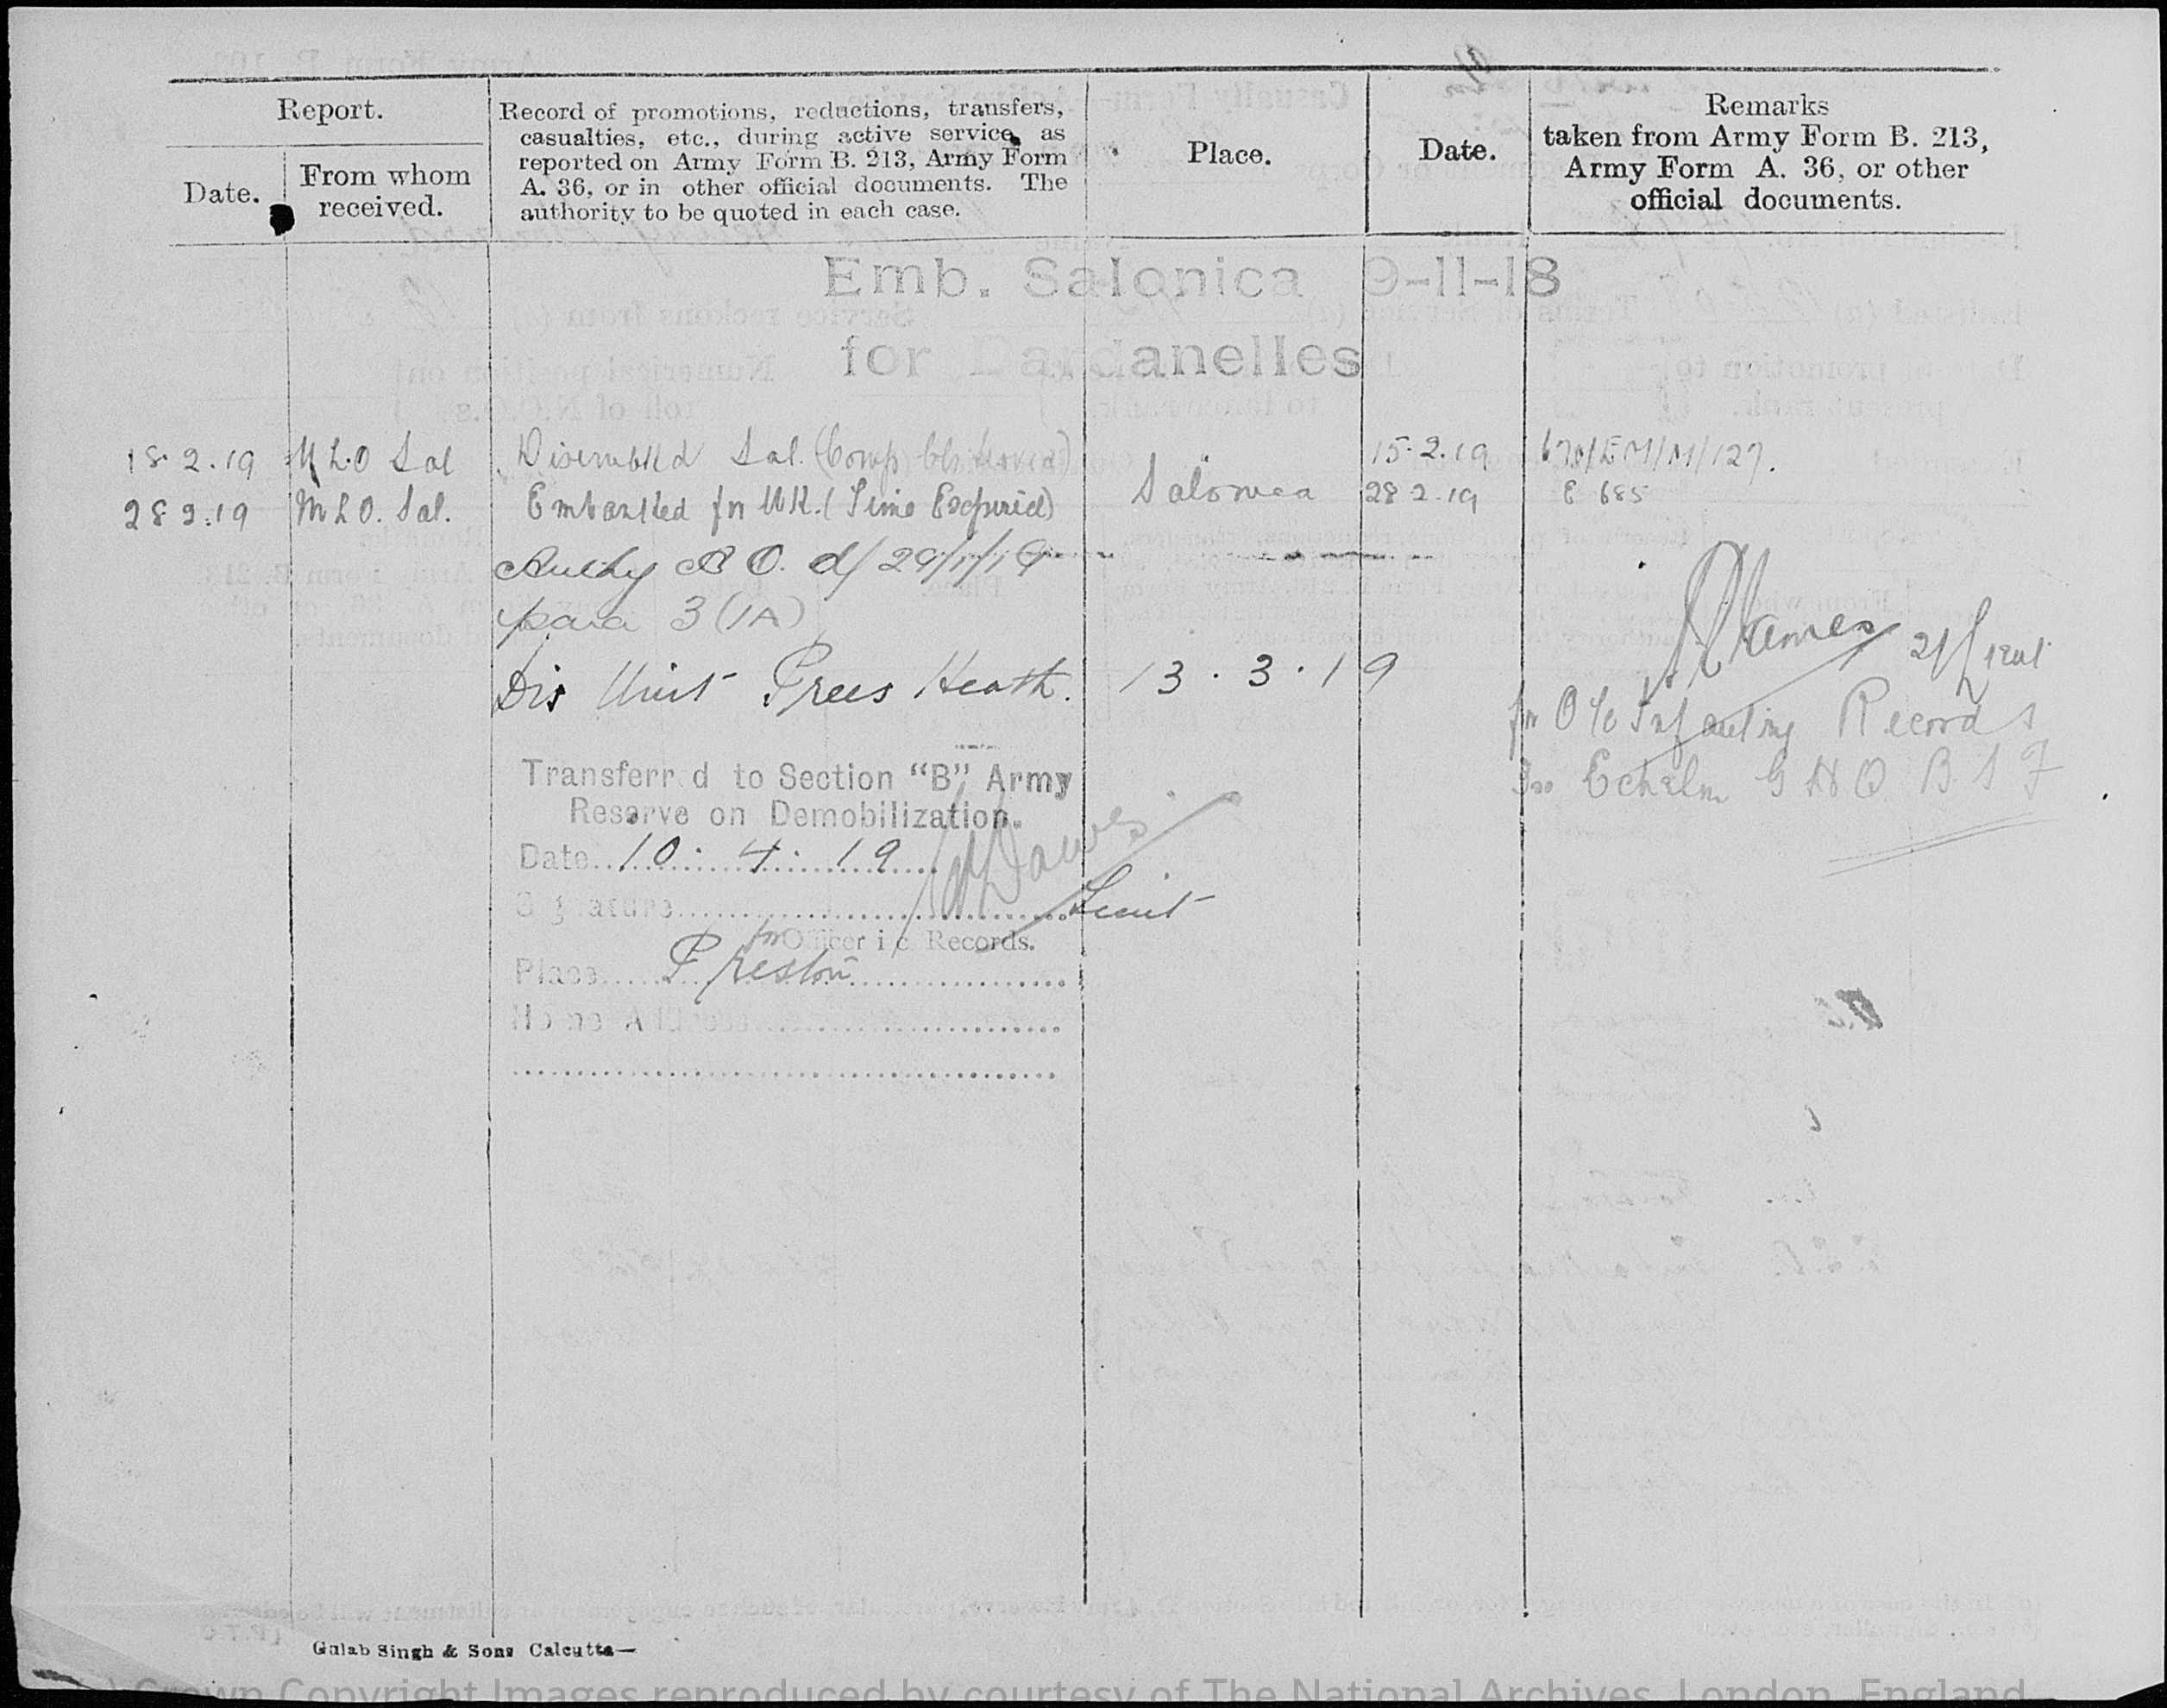 Report.
Date.
From whom
received.
Record of promotions, reductions, transfers,
casualties, etc., during active service, as
reported on Army Form B. 213, Army Form
A. 36, or in other official documents. The
authority to be quoted in each case.
Place.
Date.
Remarks
taken from Army Form B. 213,
Army Form A. 36, or other
official documents.
Emb. Salonica 9-11-18
for Dardanelles
18.2.19 M L.O Sal Disembkd Sal. 15.2.19
28 2.19 M L O. Sal. Embarked for U.K. (Time Expired) Salonica 28 2.19 E 685
Authy R O. d/ 29/1/19
para 3 (1A)
Dis Unit Prees Heath. 13.3.19
James 2/Lieut
for O i/c Infantry Records
Echelon G H Q B S F
Transferr d to Section "B" Army
Reserve on Demobilization.
Date 10.4.19
Signature Lieut
for Officer i/c Records.
Place Preston
Home Address
Gulab Singh & Sons Calcutta—
Crown Copyright Images reproduced by courtesy of The National Archives, London, England